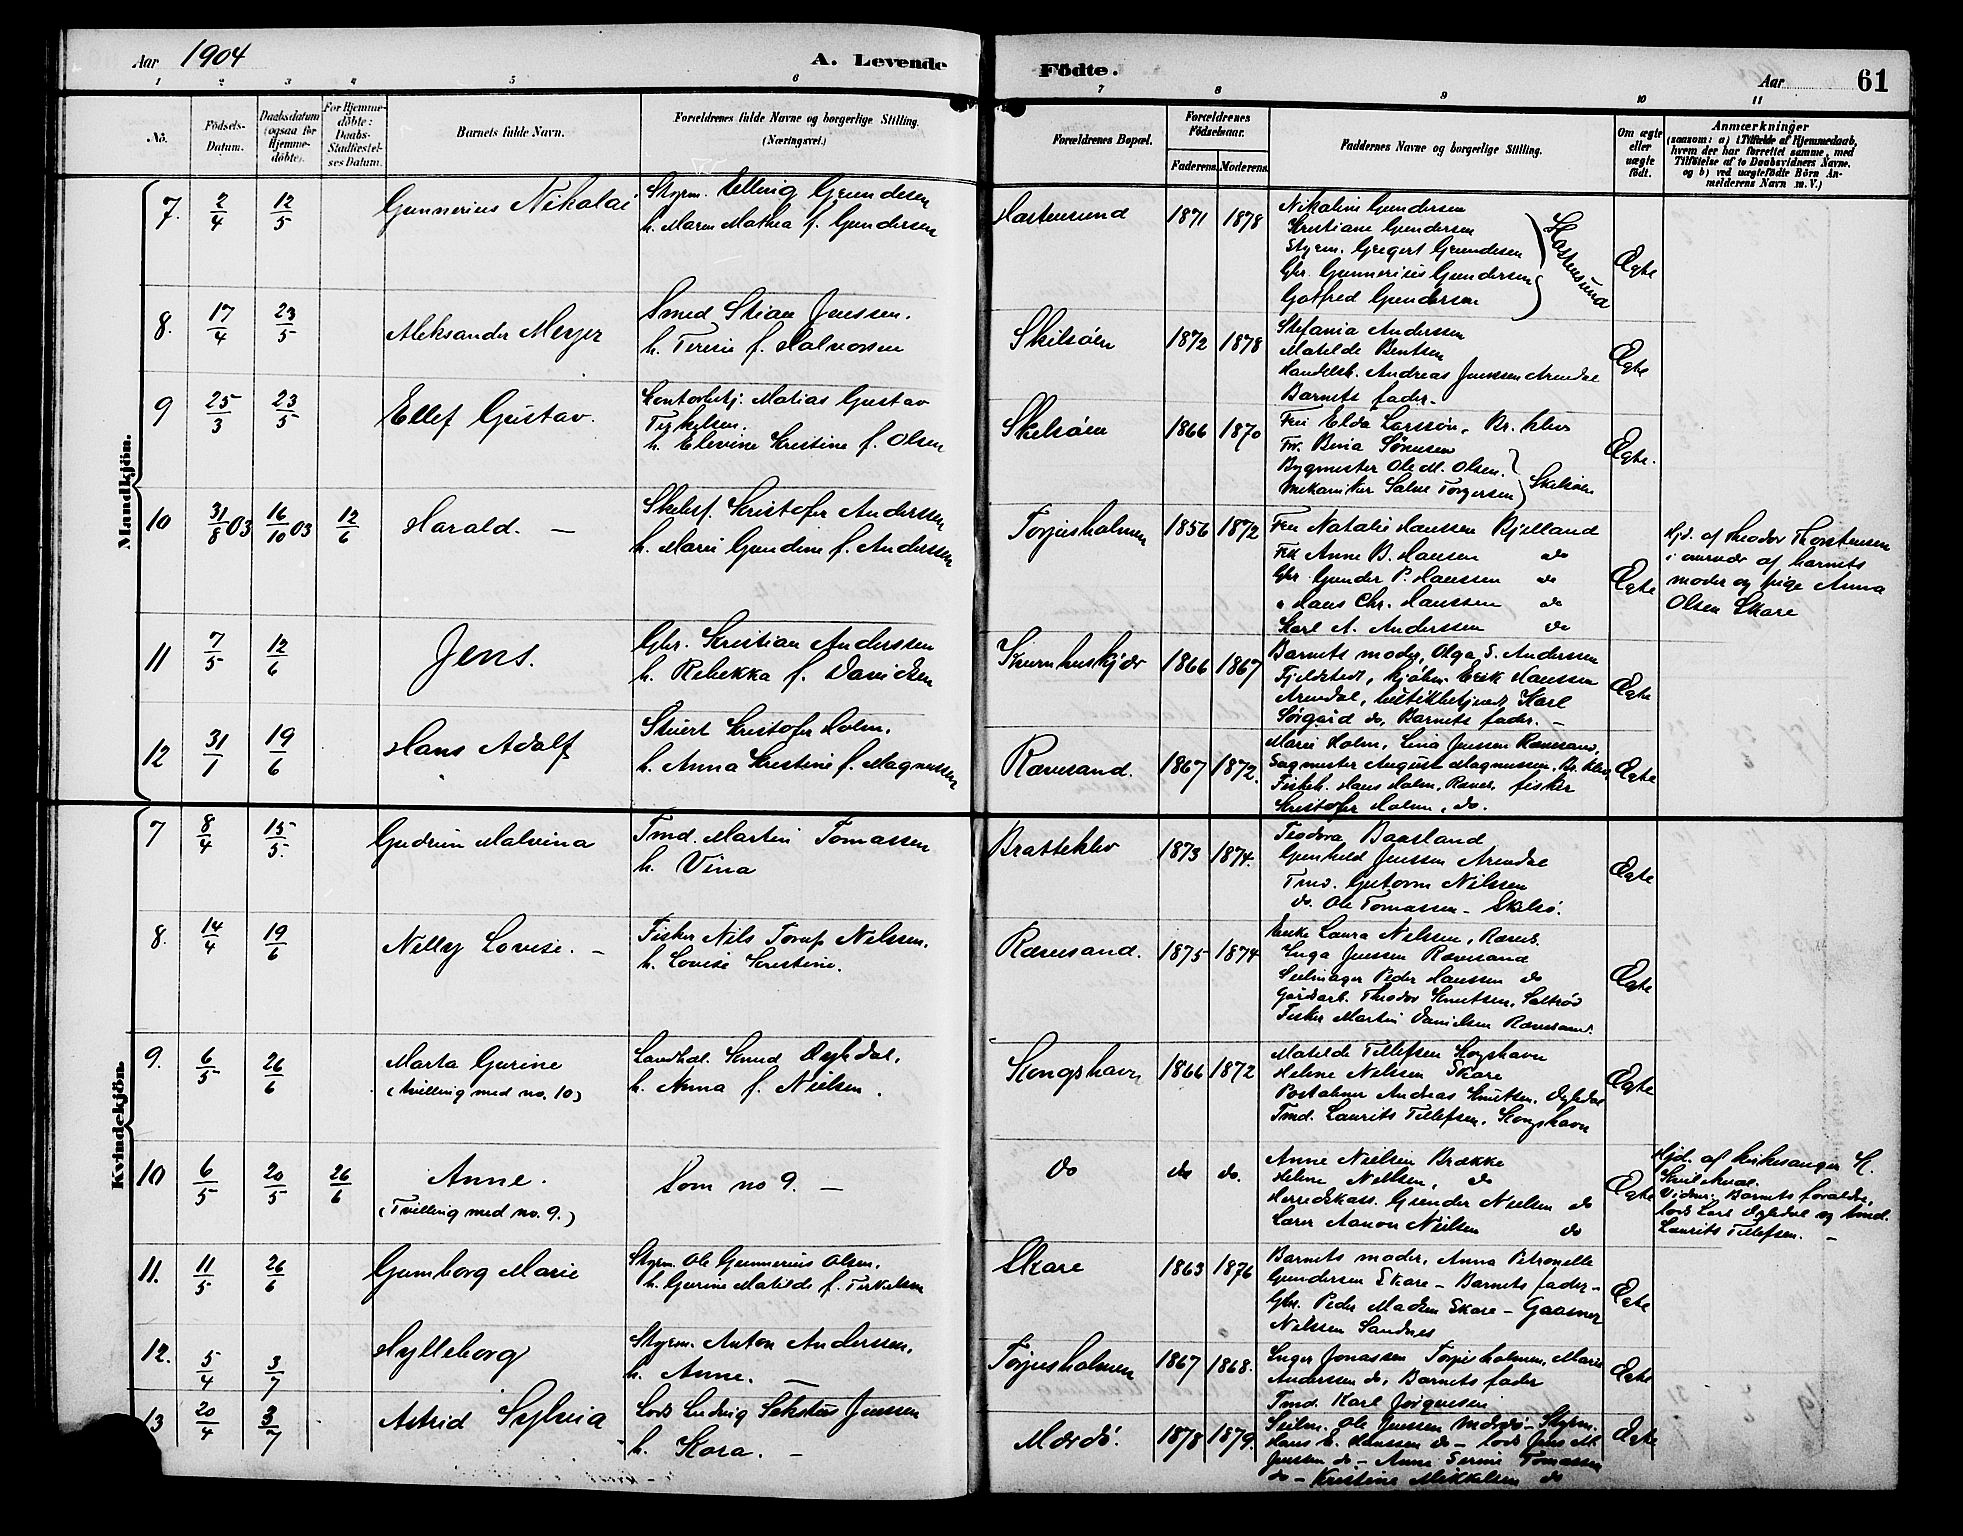 Aar 1904
A. Levende
Födte.
Aar
61
1 2 3 4 5 6 7 8 9 10 11
No.
Födsels-Datum.
Daabsdatum (ogsaa for Hjemmedöbte).
For Hjemmedöbte: Daabs-Stadfæstelses Datum.
Barnets fulde Navn.
Forældrenes fulde Navne og borgerlige Stilling. (Næringsvei.)
Forældrenes Bopæl.
Forældrenes Födselsaar.
Faderens. Moderens.
Faddernes Navne og borgerlige Stilling.
Om ægte eller uægte födt.
Anmærkninger
(saasom: a) i Tilfælde af Hjemmedaab, hvem der har forrettet samme, med Tilföielse af to Daabsvidners Navne. og b) ved uægtefödte Börn Anmelderens Navn m. V.)
Mandkjön.
7. 2/4 12/5 Gunnerius Nikolai
Styrm. Elling Gundersen
h. Maren Mathea f. Gundersen
Hastensund 1871 1878
Nikoline Gundersen
Kristiane Gundersen
Styrm. Gregert Gundersen
Gbr. Gunnerius Gundersen
Gotfred Gundersen
Hastensund
Ægte
8. 17/4 23/5 Aleksander Meyer
Smed Stian Jenssen.
h. Terese f. Halvorsen
Skilsöen 1872 1878
Stefania Anderssen
Matilde Bentsen
Handelsb. Andreas Jenssen Arendal
Barnets fader.
Ægte
9 25/3 23/5 Ellef Gustav.
Kontorbetj. Matias Gustav
Terkelsen.
h. Elevine Kristine f. Olsen
Skilsöen 1866 1870
Fru Elda Larssön, Br. klev
Frk. Bina Sörensen
Bygmester Ole M. Olsen.
Mekaniker Salve Torgersen
Skilsöen
Ægte.
10 31/8 03 16/10 03 12/6 Harald. —
Skibsf. Kristofer Anderssen
h. Marie Gundine f. Anderssen
Torjusholmen 1856 1872
Fru Natalie Hanssen Bjelland
Frk Anne B. Hansen do
Gbr Gunder P. Hanssen do
" Hans Chr. Hanssen do
Karl A. Anderssen do
Ægte
Hjd. af Theodor Thorstensen
i nærvær af barnets
moder og pige Anna
Olsen Skare
11 7/5 12/6 Jens.
Gbr. Kristian Anderssen
h. Rebekka f. Danielsen
Kvernhuskjær 1866 1867
Barnets moder, Olga S. Anderssen
Fjeldstedt, kjöbm. Eerk Hanssen
Arendal, betjent Karl
Sörgård do, Barnets fader. —
Ægte
12 31/1 19/6 Hans Adolf
Stuert Kristofer Holm.
h. Anna Kristine f. Magnussen
Rævesand. 1867 1872.
Marie Holm, Lina Jenssen Rævesand,
Sagmester August Magnussen. Br. klev
Fiskeh. Hans Holm, Ræves, fisker
Kristofer Holm, do.
Ægte
Kvindekjön.
7 8/4 15/5 Gudrun Malvina
Tmd. Martin Tomassen
h. Vina
Bratteklev 1873 1874.
Teodora Baasland
Gunhild Jenssen Arendal
Tmd. Gutorm Nilssen
do. Ole Tomassen — Skilsö.
Ægte
8. 14/4 19/6 Nelly Lovise. —
Fisker Nils Torup Nilssen.
h. Lovise Kristine.
Rævesand. 1875 1874
Enke Laura Nilssen, Ræves.
Inga Jenssen Rævesand
Seilmager Peder Hanssen do
Gårdarb. Theodor Knutsen, Saltröd
Fisker Martin Danielsen Rævesand.
Ægte
9. 6/5 26/6 Marta Gurine
(tvilling med no. 10)
Landhdl. Knud Dybdal.
h. Anna f. Nielsen.
Kongshavn 1866 1872
Matilde Tellefsen Kongshavn
Helene Nielsen Skare
Postaabner Andreas Knutsen. Dybdal
Tmd. Laurits Tellefsen. Kongshavn
Ægte
10 6/5 20/5 26/6 Anne.
(Tvilling med no. 9.)
Som no 9. —
do do do.
Anne Nielsen Brække
Helene Nielsen, do
Herredskass. Gunder Nielsen do
Lærer Aanon Nielsen do
Ægte
Hjd. af kirkesanger K.
Vidner. Barnets foraldre,
lods Carl Dybdal og tmd.
Laurits Tellefsen. —
11. 11/5 26/6 Gunborg Marie
Styrm. Ole Gunnerius Olsen.
h. Gurine Matilde f. Terkelsen
Skare 1863 1876
Barnets moder, Anna Petronelle
Gundersen Skare — Barnets fader —
Gbr. Peder Madsen Skare — Gaasmer
Nilssen Sandnes
Ægte
12. 5/4 3/7 Hylleborg
Styrm. Anton Anderssen.
h. Anne. —
Torjusholmen 1867 1868.
Inger Jonassen Torjusholmen, Marie
Anderssen do, Barnets fader
Tmd. Karl Jörgensen
Ægte
13 20/4 3/7 Astrid Sylvia
Lods Ludvig Sekstus Jenssen
h. Kara. —
Mærdö. 1878 1879.
Seilm. Ole Jenssen Mærdö — Styrm.
Hans E. Hanssen do — lods Jens M.
Jenssen do — Anne Serine Tomassen
do — Kristine Mikkelsen do
Ægte